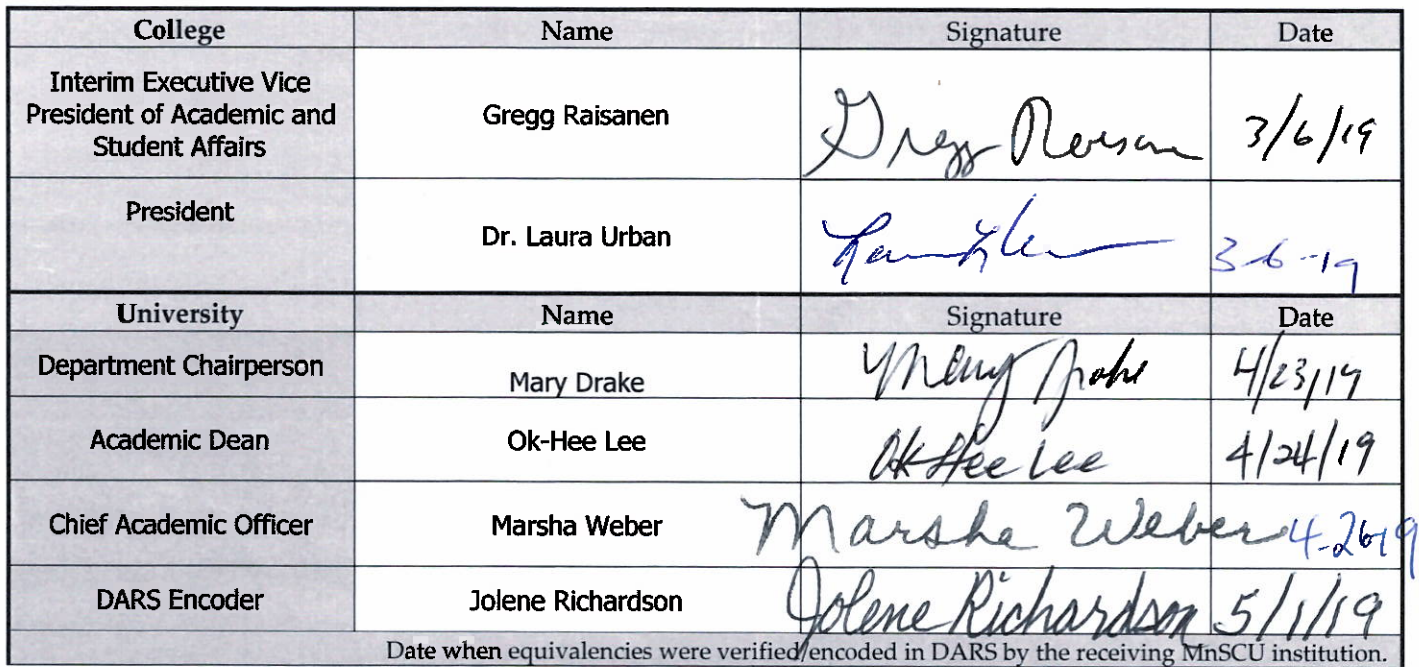 College Name Signature Date
Interim Executive Vice
President of Academic and
Student Affairs
Gregg Raisanen
Gregg 3/6/19
President
Dr. Laura Urban
3-6-19
University Name Signature Date
Department Chairperson
Mary Drake
Mary Drake 4/23/19
Academic Dean
Ok-Hee Lee
Ok-Hee Lee 4/24/19
Chief Academic Officer
Marsha Weber
Marsha Weber 4-26-19
DARS Encoder
Jolene Richardson
Jolene Richardson 5/1/19
Date when equivalencies were verified/encoded in DARS by the receiving MnSCU institution.